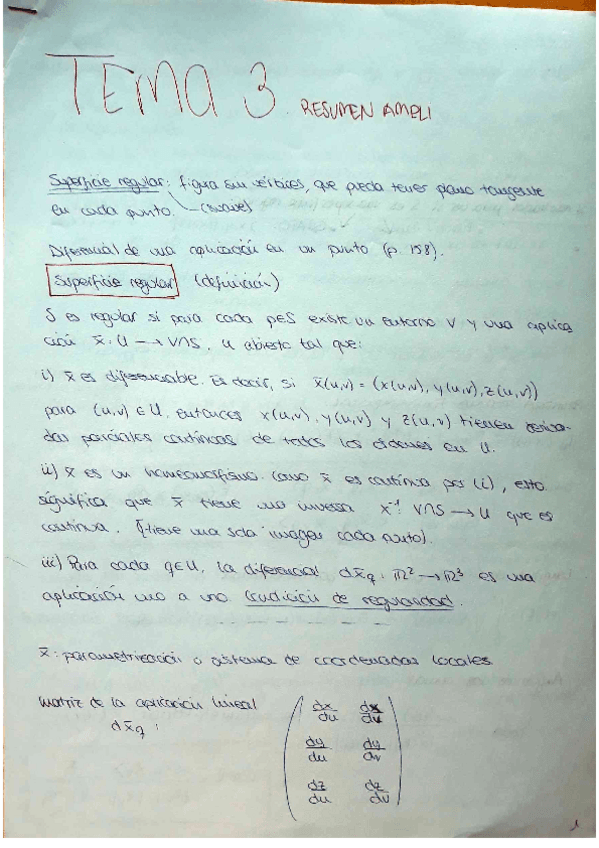 TEMA 3 RESUMEN AMPLI
Superficie regular: figura sin vértices, que pueda tener plano tangente
en cada punto. (suave)
Diferencial de una aplicación en un punto (p. 158).
Superficie regular (definición)
S es regular si para cada p∈S existe un entorno V y una aplica
ción x̄: U → V∩S, U abierto tal que:
i) x̄ es diferenciable. Es decir, si x̄(u,v) = (x(u,v), y(u,v), z(u,v))
para (u,v) ∈ U. entonces x(u,v), y(u,v) y z(u,v) tienen deriva-
das parciales continuas de todos los órdenes en U.
ii) x̄ es un homeomorfismo. Como x̄ es continua por (i), esto
significa que x̄ tiene una inversa x̄⁻¹: V∩S → U que es
continua. (tiene una sola imagen cada punto).
iii) Para cada q∈U, la diferencial dx̄q: ℝ² → ℝ³ es una
aplicación uno a uno. Condición de regularidad.
x̄: parametrización o sistema de coordenadas locales
Matriz de la aplicación lineal
dx̄q:
dx/du dx/dv
dy/du dy/dv
dz/du dz/dv
1